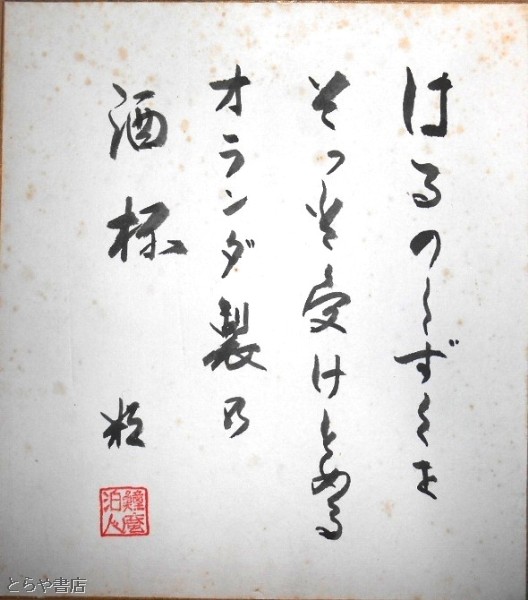 はるのしずくを
そっと受けとめる
オランダ製乃
酒杯
とらや書店